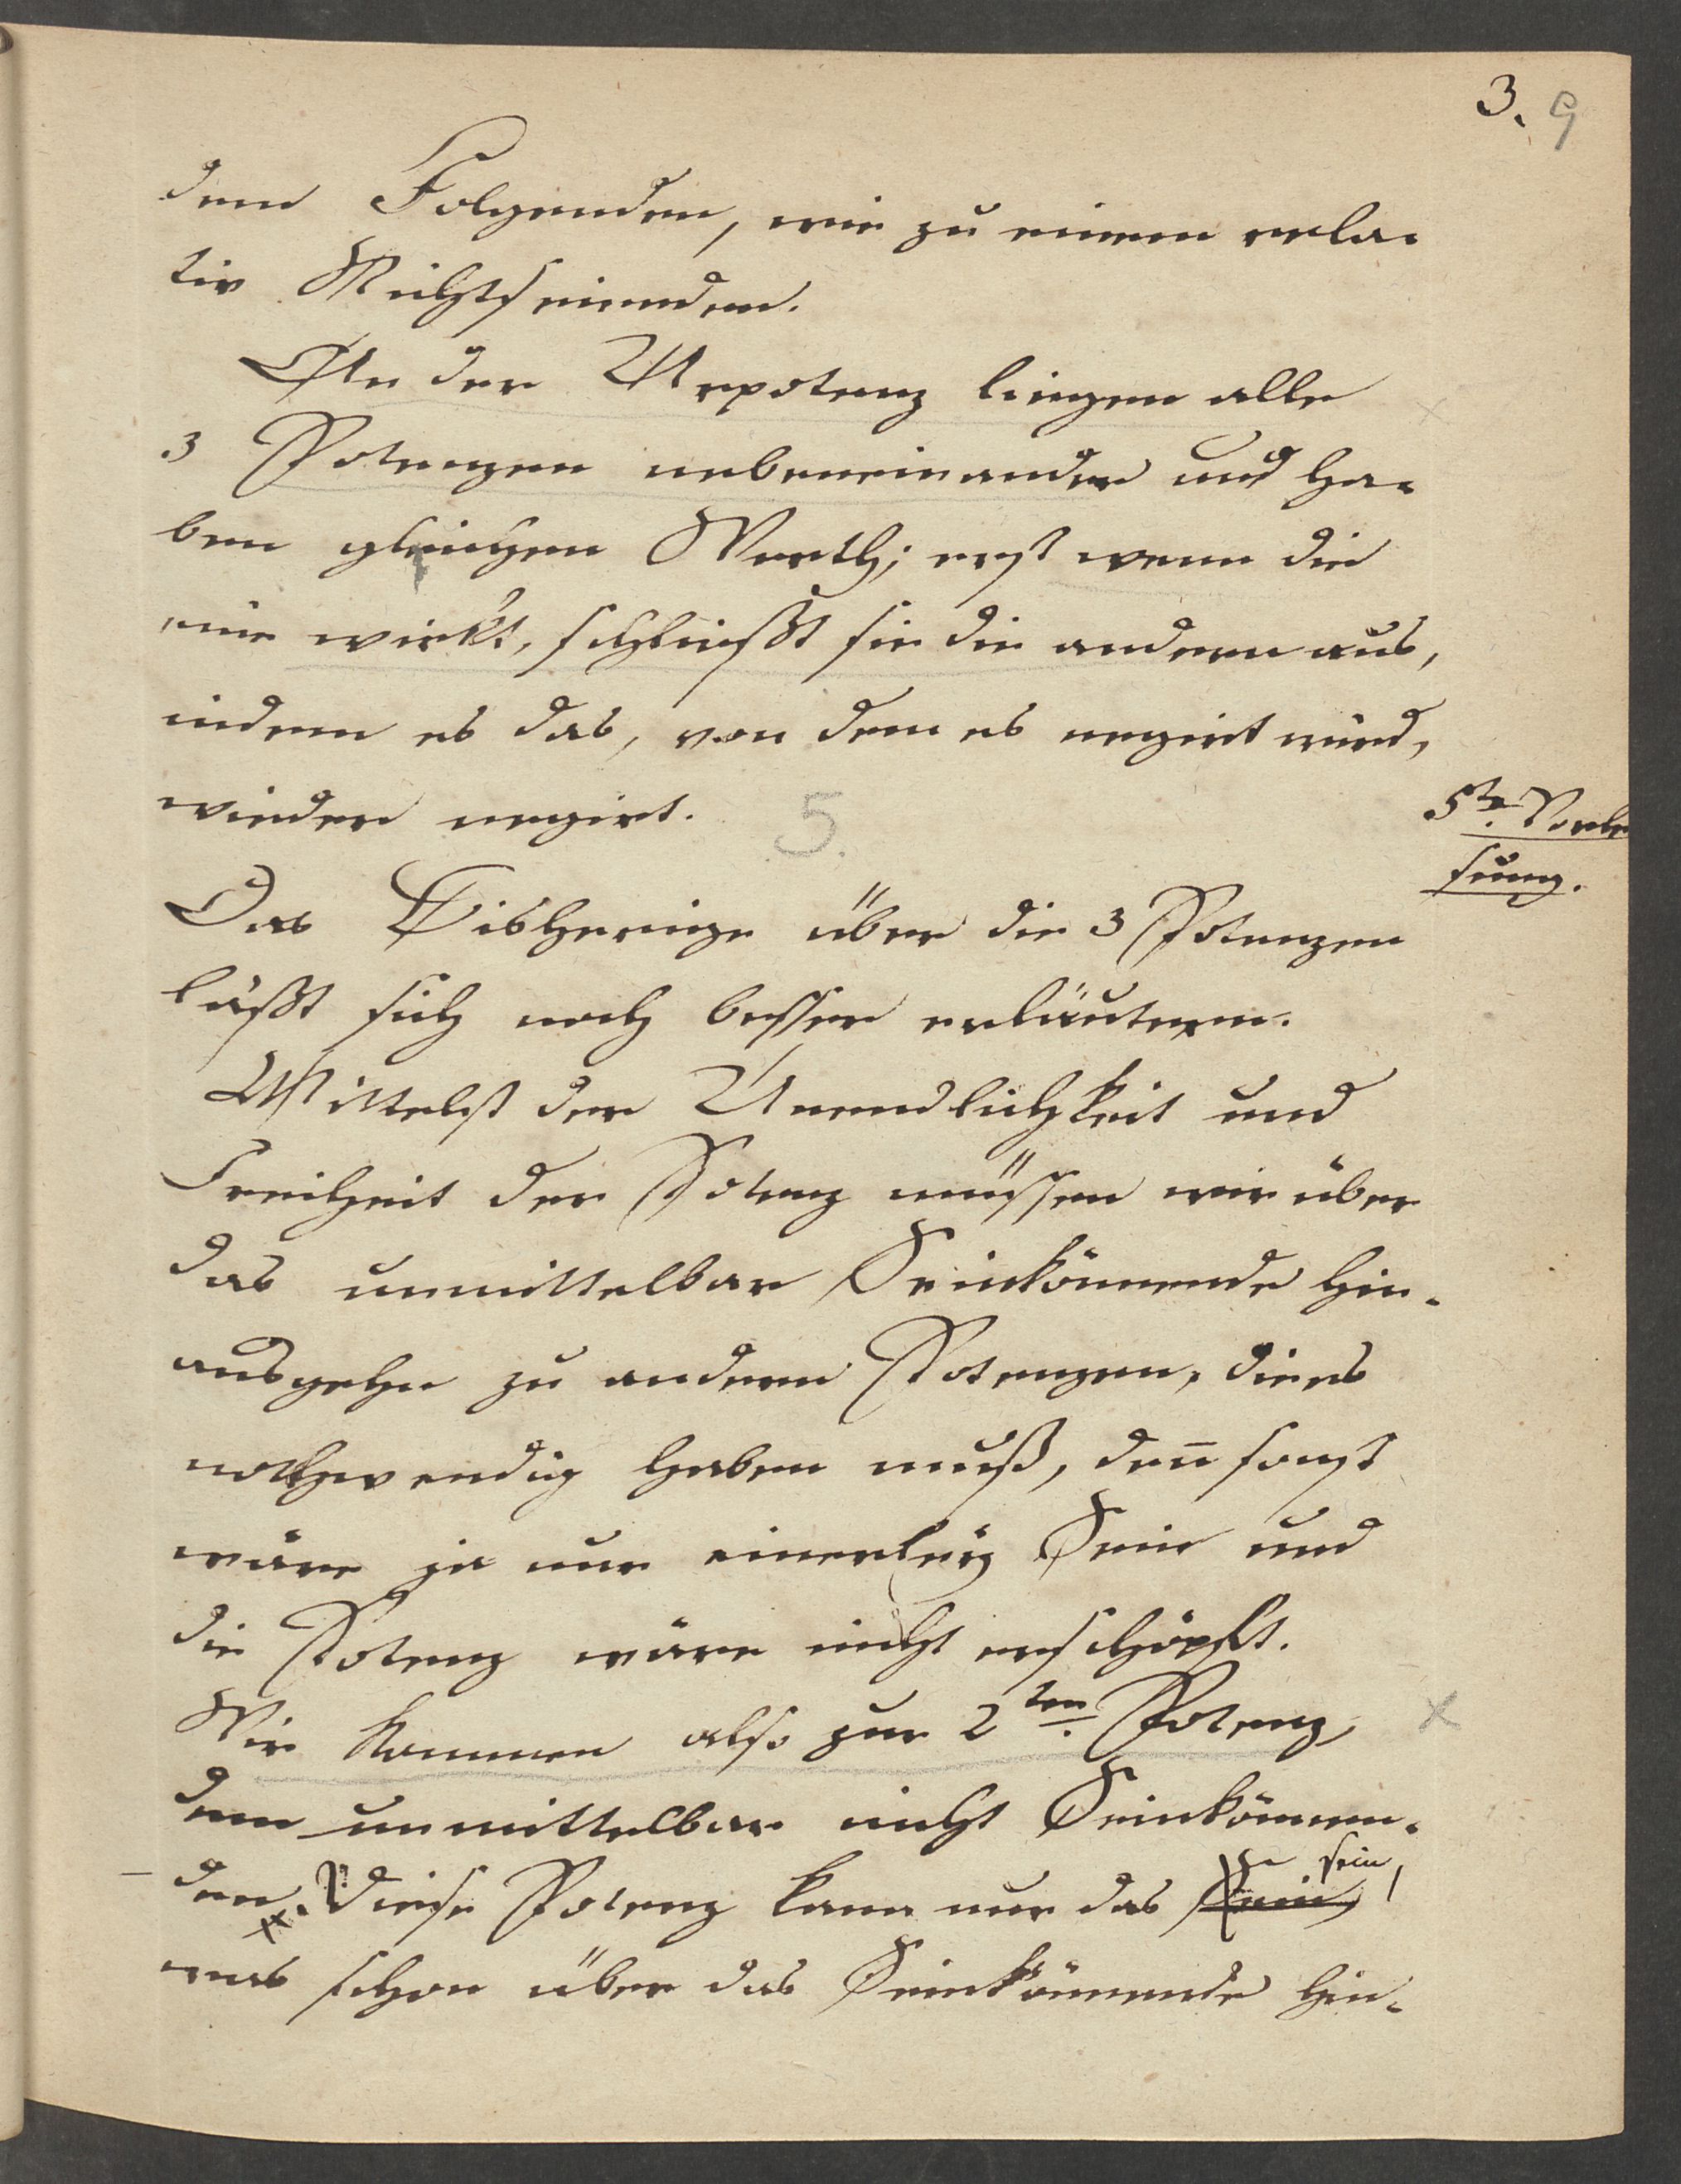 3. 9
dem Folgenden, wie zu einem rela-
tiv Nichtseienden.
In der Urpotenz liegen alle
3 Potenzen nebeneinander und ha-
ben gleichen Werth; erst wenn die
eine wirkt, schließt sie die andern aus,
indem es das, von dem es negirt wird,
wieder negirt.
5.
5te Vorle
sung.
Das Bisherige über die 3 Potenzen
läßt sich noch besser erläutern.
Mittelst der Unendlichkeit und
Freiheit der Potenz müssen wir über
das unmittelbar Seinkönnende hin-
ausgehn zu andern Potenzen, die es
nothwendig haben muß, den̅ sonst
wäre ja nur einerlei Sein und
die Potenz wäre nicht erschöpft.
Wir kommen also zur 2ten Potenz,
dem unmittelbar nicht Seinkönnen-
den. Diese Potenz kann nur das sein,
was schon über das Seinkönnende hin-